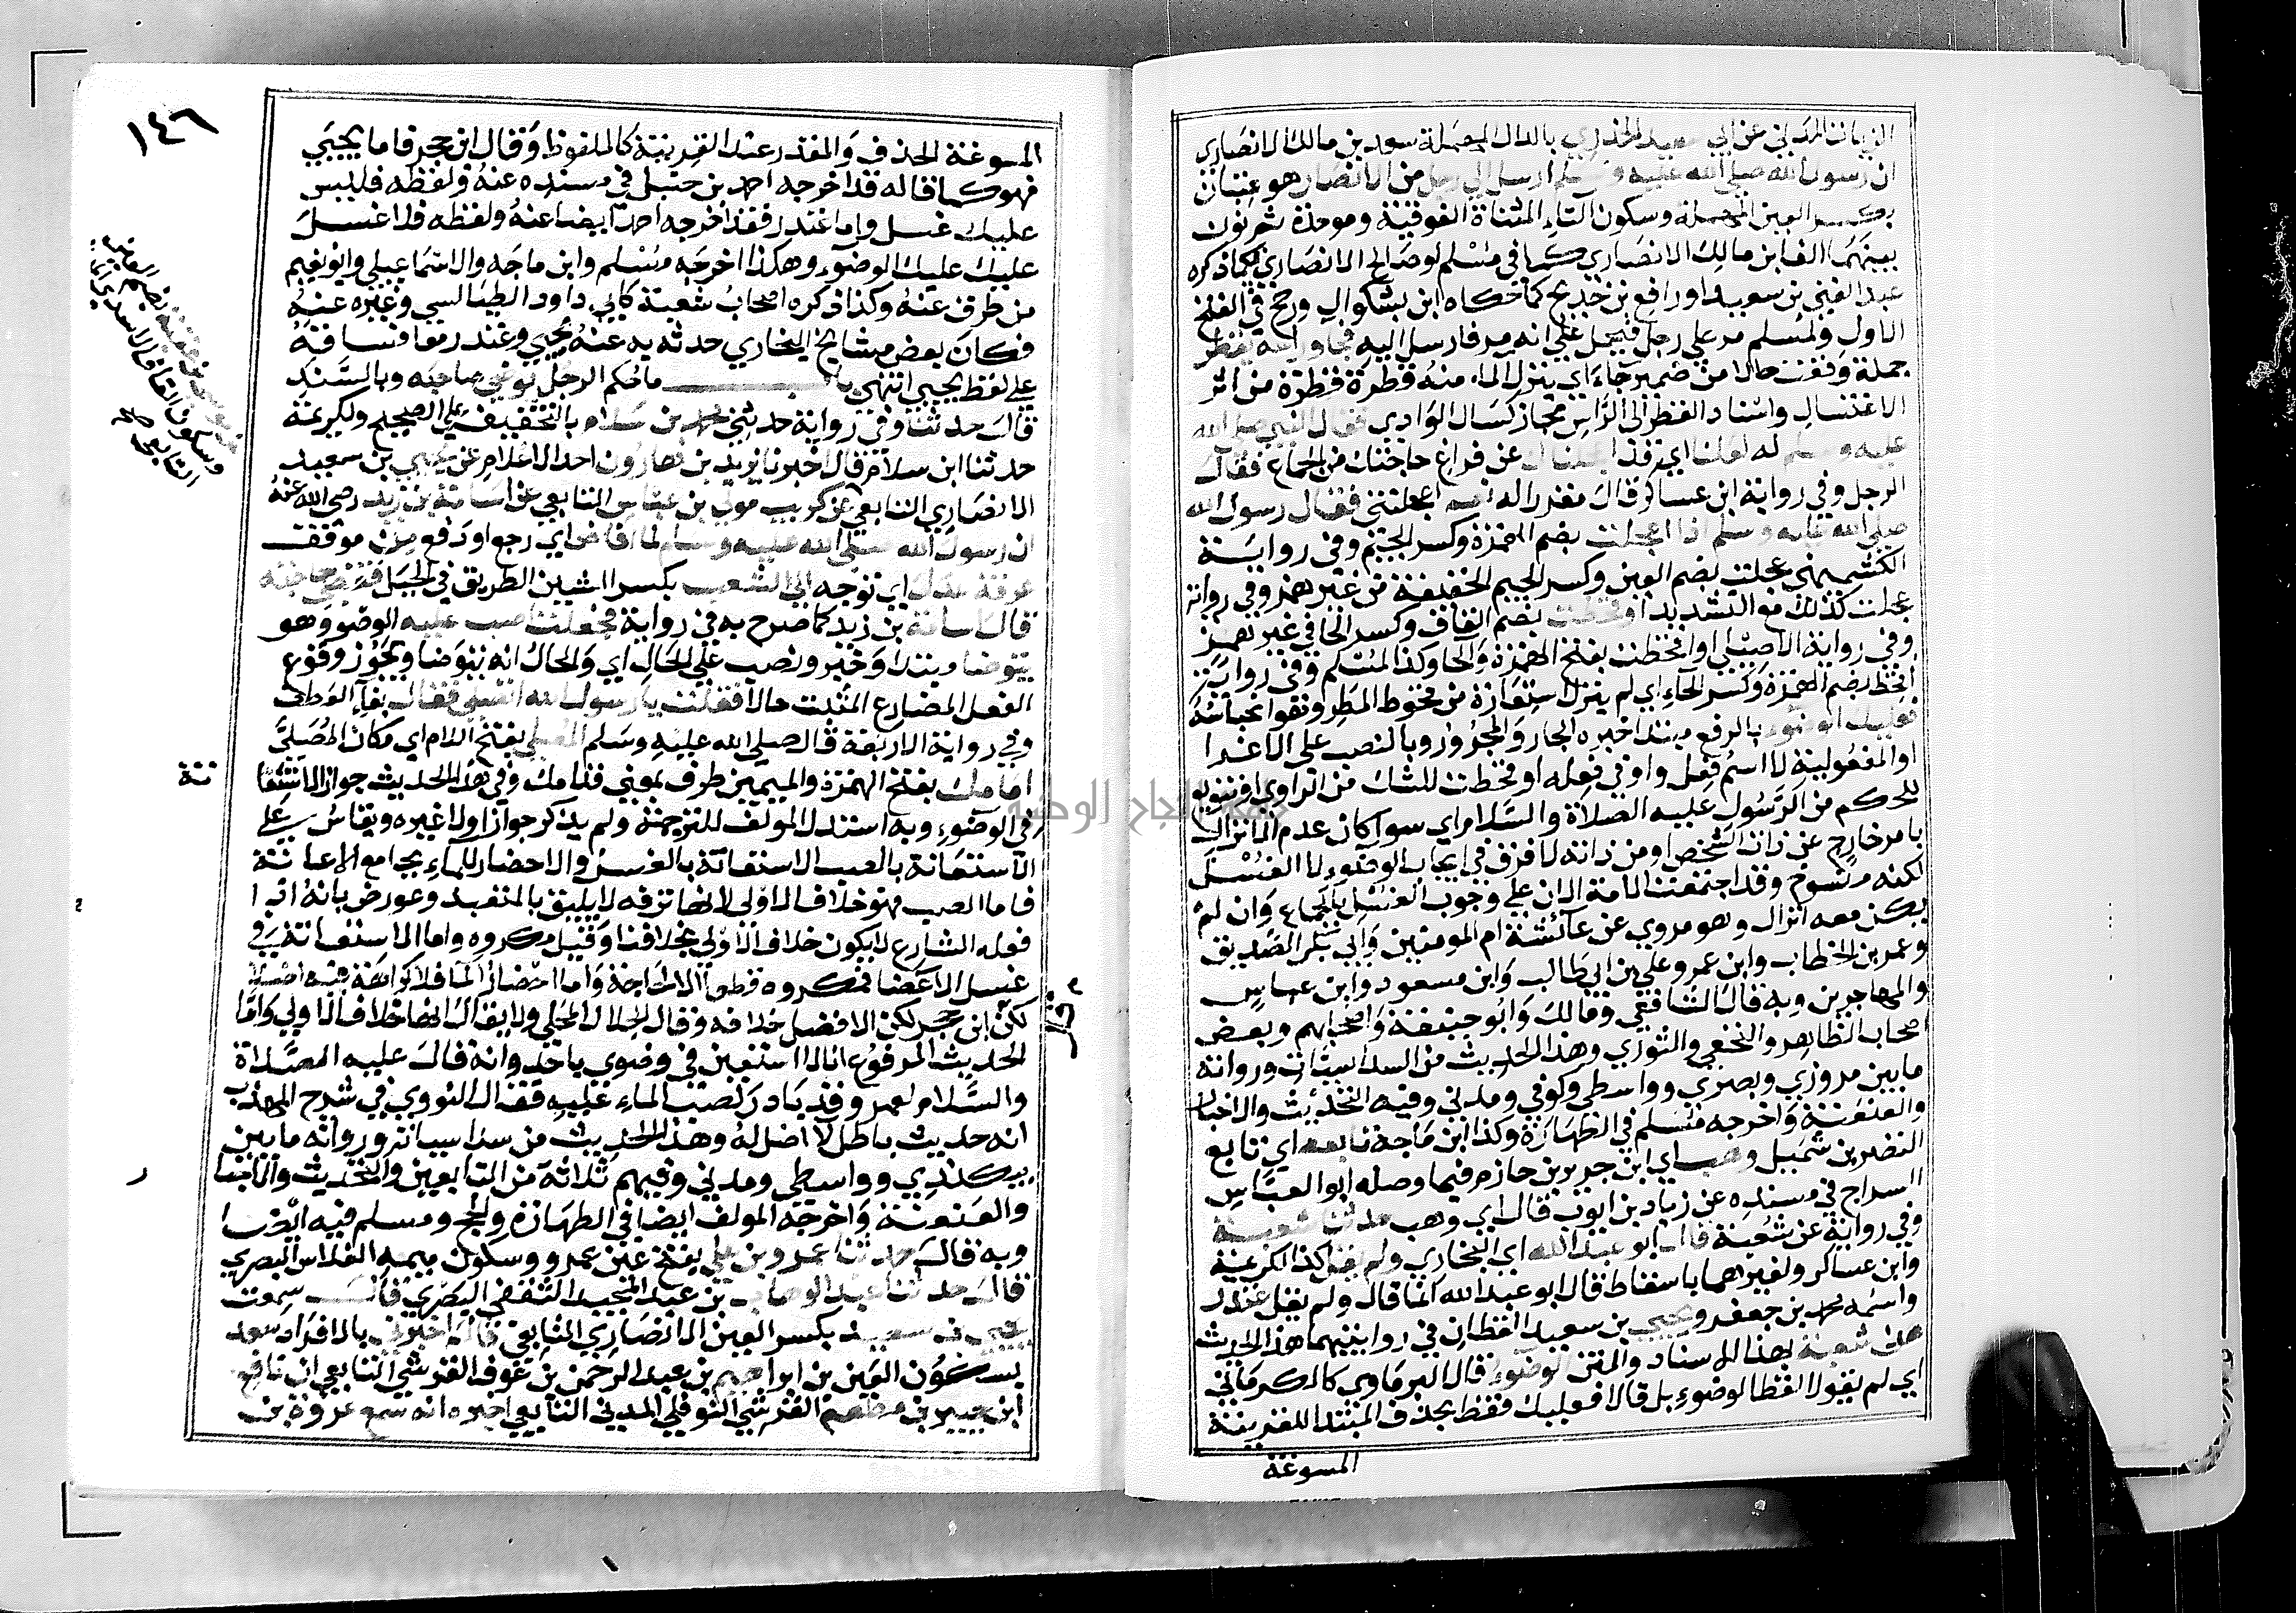 الزيات المدني عن ابي سعيد الخدري بالدال المهملة سعد بن مالك الانصاري
ان رسول الله صلي الله عليه وسلم ارسل الي رجل من الانصار هو عتبان
بكسر العين المهملة وسكون التاء المثناة الفوقية وموحدة ثم نون
بينهما الف ابن مالك الانصاري كما في مسلم او صالح الانصاري فيما ذكره
عبد الغني بن سعيد او رافع بن خديج كما حكاه ابن بشكوال ورجح في الفتح
الاول ولمسلم مر علي رجل فيحمل علي انه مر فارسل اليه فجا وراسه يقطر
جملة وقعت حالا من ضمير جاء اي ينزل الماء منه قطرة قطرة من اثر
الاغتسال واسناد القطر الي الراس مجاز كسال الوادي فقال النبي صلي الله
عليه وسلم له لعلنا اي قد اعجلناك عن فراغ حاجتك من الجماع فقال
الرجل وفي رواية ابن عساكر قال مقدرا له نعم اعجلتني فقال رسول الله
صلي الله عليه وسلم اذا اعجلت بضم الهمزة وكسر الجيم وفي رواية
الكشميهني عجلت بضم العين وكسر الجيم الخفيفة من غير همز وفي رواية
عجلت كذلك مع التشديد او قحطت بضم القاف وكسر الحا في غير همز
وفي رواية الاصيلي او اقحطت بفتح الهمزة والحا وكذا لمسلم وفي رواية
اقحط بضم الهمزة وكسر الحاء اي لم ينزل استعارة من قحوط المطر وهو انحباسه
فعليك الوضوء بالرفع مبتدا خبره الجار والمجرور وبالنصب علي الاغرا
او المفعولية لا اسم فعل واو في قوله او قحطت للشك من الراوي او تنويع
للحكم من الرسول عليه الصلاة والسلام اي سوا كان عدم الانزال
بامر خارج عن ذات الشخص او من ذاته لا فرق في ايجاب الوضوء لا الغسل
لكنه منسوخ وقد اجتمعت الامة الان علي وجوب الغسل بالجماع وان لم
يكن معه انزال وهو مروي عن عائشة ام المومنين وابي بكر الصديق
وعمر بن الخطاب وابن عمر وعلي بن ابي طالب وابن مسعود وابن عباس
والمهاجرين وبه قال الشافعي ومالك وابو حنيفة واصحابهم وبعض
اصحاب الظاهر والنخعي والثوري وهذا الحديث من السداسيات ورواته
ما بين مروزي وبصري وواسطي وكوفي ومدني وفيه التحديث والاخبار
والعنعنة واخرجه مسلم في الطهارة وكذا ابن ماجة تابعه اي تابع
النضر بن شميل وهب اي ابن جرير بن حازم فيما وصله ابو العباس
السراج في مسنده عن زياد بن ايوب قال اي وهب حدثنا شعبة
وفي رواية عن شعبة قال ابو عبد الله اي البخاري ولم يقل كذا لكريمة
وابن عساكر ولغيرهما باسقاط قال ابو عبد الله انما قال ولم يقل غندر
واسمه محمد بن جعفر ويحيي بن سعيد القطان في روايتهما هذا الحديث
عن شعبة بهذا الاسناد والمتن الوضوء قال البرماوي كالكرماني
اي لم يقولا لفظ الوضوء بل قالا فعليك فقط بحذف المبتدا للقرينة
المسوغة
١٤٦
المسوغة الحذف والمقدر عند القرينة كالملفوظ وقال ابن حجر فاما يحيي
فهو كما قاله قد اخرجه احمد بن حنبل في مسنده عنه ولفظه فليس
عليك غسل واما غندر فقد اخرجه احمد ايضا عنه ولفظه فلا غسل
عليك عليك الوضوء وهكذا اخرجه مسلم وابن ماجه والاسماعيلي وابو نعيم
من طرق عنه وكذا ذكره اصحاب شعبة كابي داود الطيالسي وغيره عنه
فكان بعض مشايخ البخاري حدثه به عنه يحيي وغندر معا فساقه
علي لفظ يحيي انتهي باب ما حكم الرجل يوضي صاحبه وبالسند
قال حدثنا وفي رواية حدثني محمد بن سلام بالتخفيف علي الصحيح ولكريمة
حدثنا ابن سلام قال اخبرنا يزيد بن هارون احد الاعلام عن يحيي بن سعيد
الانصاري التابعي عن كريب مولي بن عباس التابعي عن اسامة بن زيد رضي الله عنه
ان رسول الله صلي الله عليه وسلم لما افاض اي رجع او دفع من موقف
عرفة عدل اي توجه الي الشعب بكسر الشين الطريق في الجبل فقضي حاجته
قال اسامة بن زيد كما صرح به في رواية فجعلت اصب عليه الوضوء وهو
يتوضا مبتدا وخبر ونصب علي الحال اي والحال انه يتوضا ويجوز وقوع
الفعل المضارع المثبت حالا فقلت يا رسول الله اتصلي فقال بفاء العطف
وفي رواية الاربعة قال صلي الله عليه وسلم المصلي بفتح اللام اي مكان المصلي
امامك بفتح الهمزة والميمين ظرف بمعني قدامك وفي هذا الحديث جواز الاستعا
نة
في الوضوء وبه استدل المولف للترجمة ولم يذكر جوازا ولا غيره ويقاس علي
الاستعانة بالصب الاستعانة بالغسل والاحضار للماء بجامع الاعانة
فاما الصب فهو خلاف الاولي لانها ترفه لا يليق بالمتعبد وعورض بانه اذا
فعله الشارع لا يكون خلاف الاولي بخلافنا وقيل مكروه واما الاستعانة في
غسل الاعضا فمكروه قطعا الا لحاجة واما احضار الما فلا كراهة فيه اصلا
لكن ابن حجر لكن الافضل خلافه وقال الجلال المحلي ولا يقال انها خلاف الاولي واما
الحديث المرفوع انا لا استعين في وضوي باحد وانه قال عليه الصلاة
والسلام لعمر وقد بادر لصب الماء عليه فقال النووي في شرح المهذب
انه حديث باطل لا اصل له وهذا الحديث من سداسياته ورواته ما بين
بيكندي وواسطي ومدني وفيهم ثلاثة من التابعين والتحديث والاخبا
ر
والعنعنة واخرجه المولف ايضا في الطهارة والحج ومسلم فيه ايضا
وبه قال حدثنا عمرو بن علي بفتح عين عمرو وسكون ميمه الفلاس البصري
قال حدثنا عبد الوهاب بن عبد المجيد الثقفي البصري قال سمعت
يحيي بن سعيد بكسر العين الانصاري التابعي قال اخبرني بالافراد سعد
بسكون العين بن ابراهيم بن عبد الرحمن بن عوف القرشي التابعي ان نافع
ابن جبير بن مطعم القرشي النوفلي المدني التابعي اخبره انه سمع عروة بن
وسكون القاف الاسدي
التابعي
جامعة النجاح الوطنية